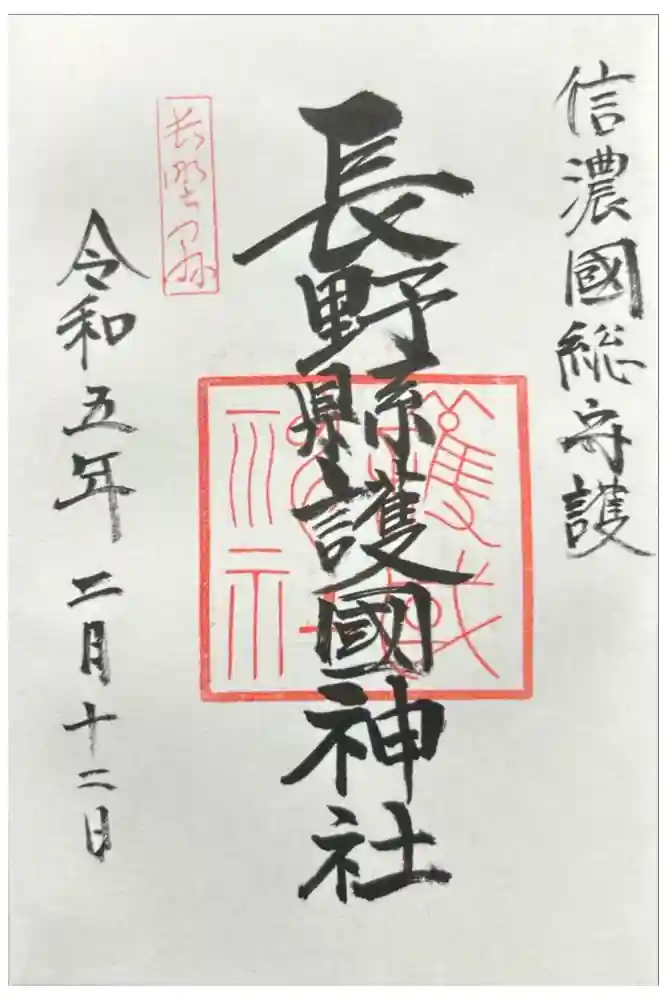 信濃國総守護
長野縣護國神社
長野県
令和五年二月十二日